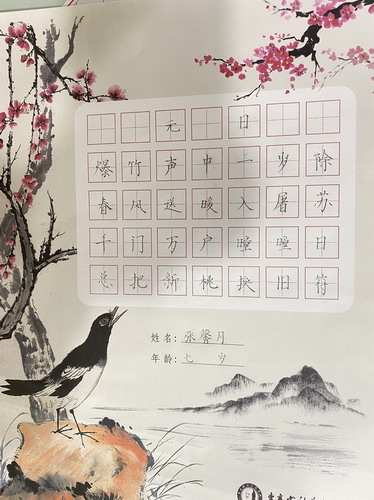 元日
爆竹声中一岁除
春风送暖入屠苏
千门万户曈曈日
总把新桃换旧符
姓名：张馨月
年龄：七 岁